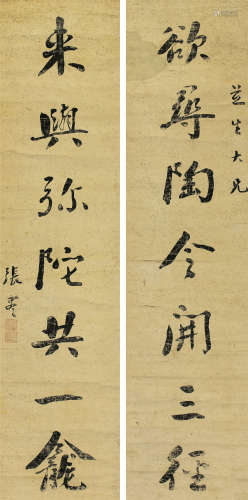 欲尋陶令開三徑
生大兄
来與弥陀共一龕
張